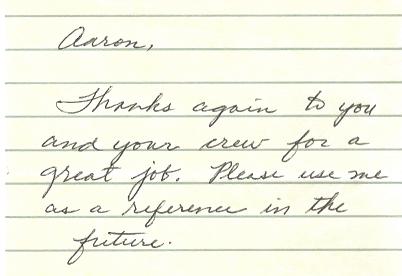 Aaron,
Thanks again to you
and your crew for a
great job. Please use me
as a reference in the
future.